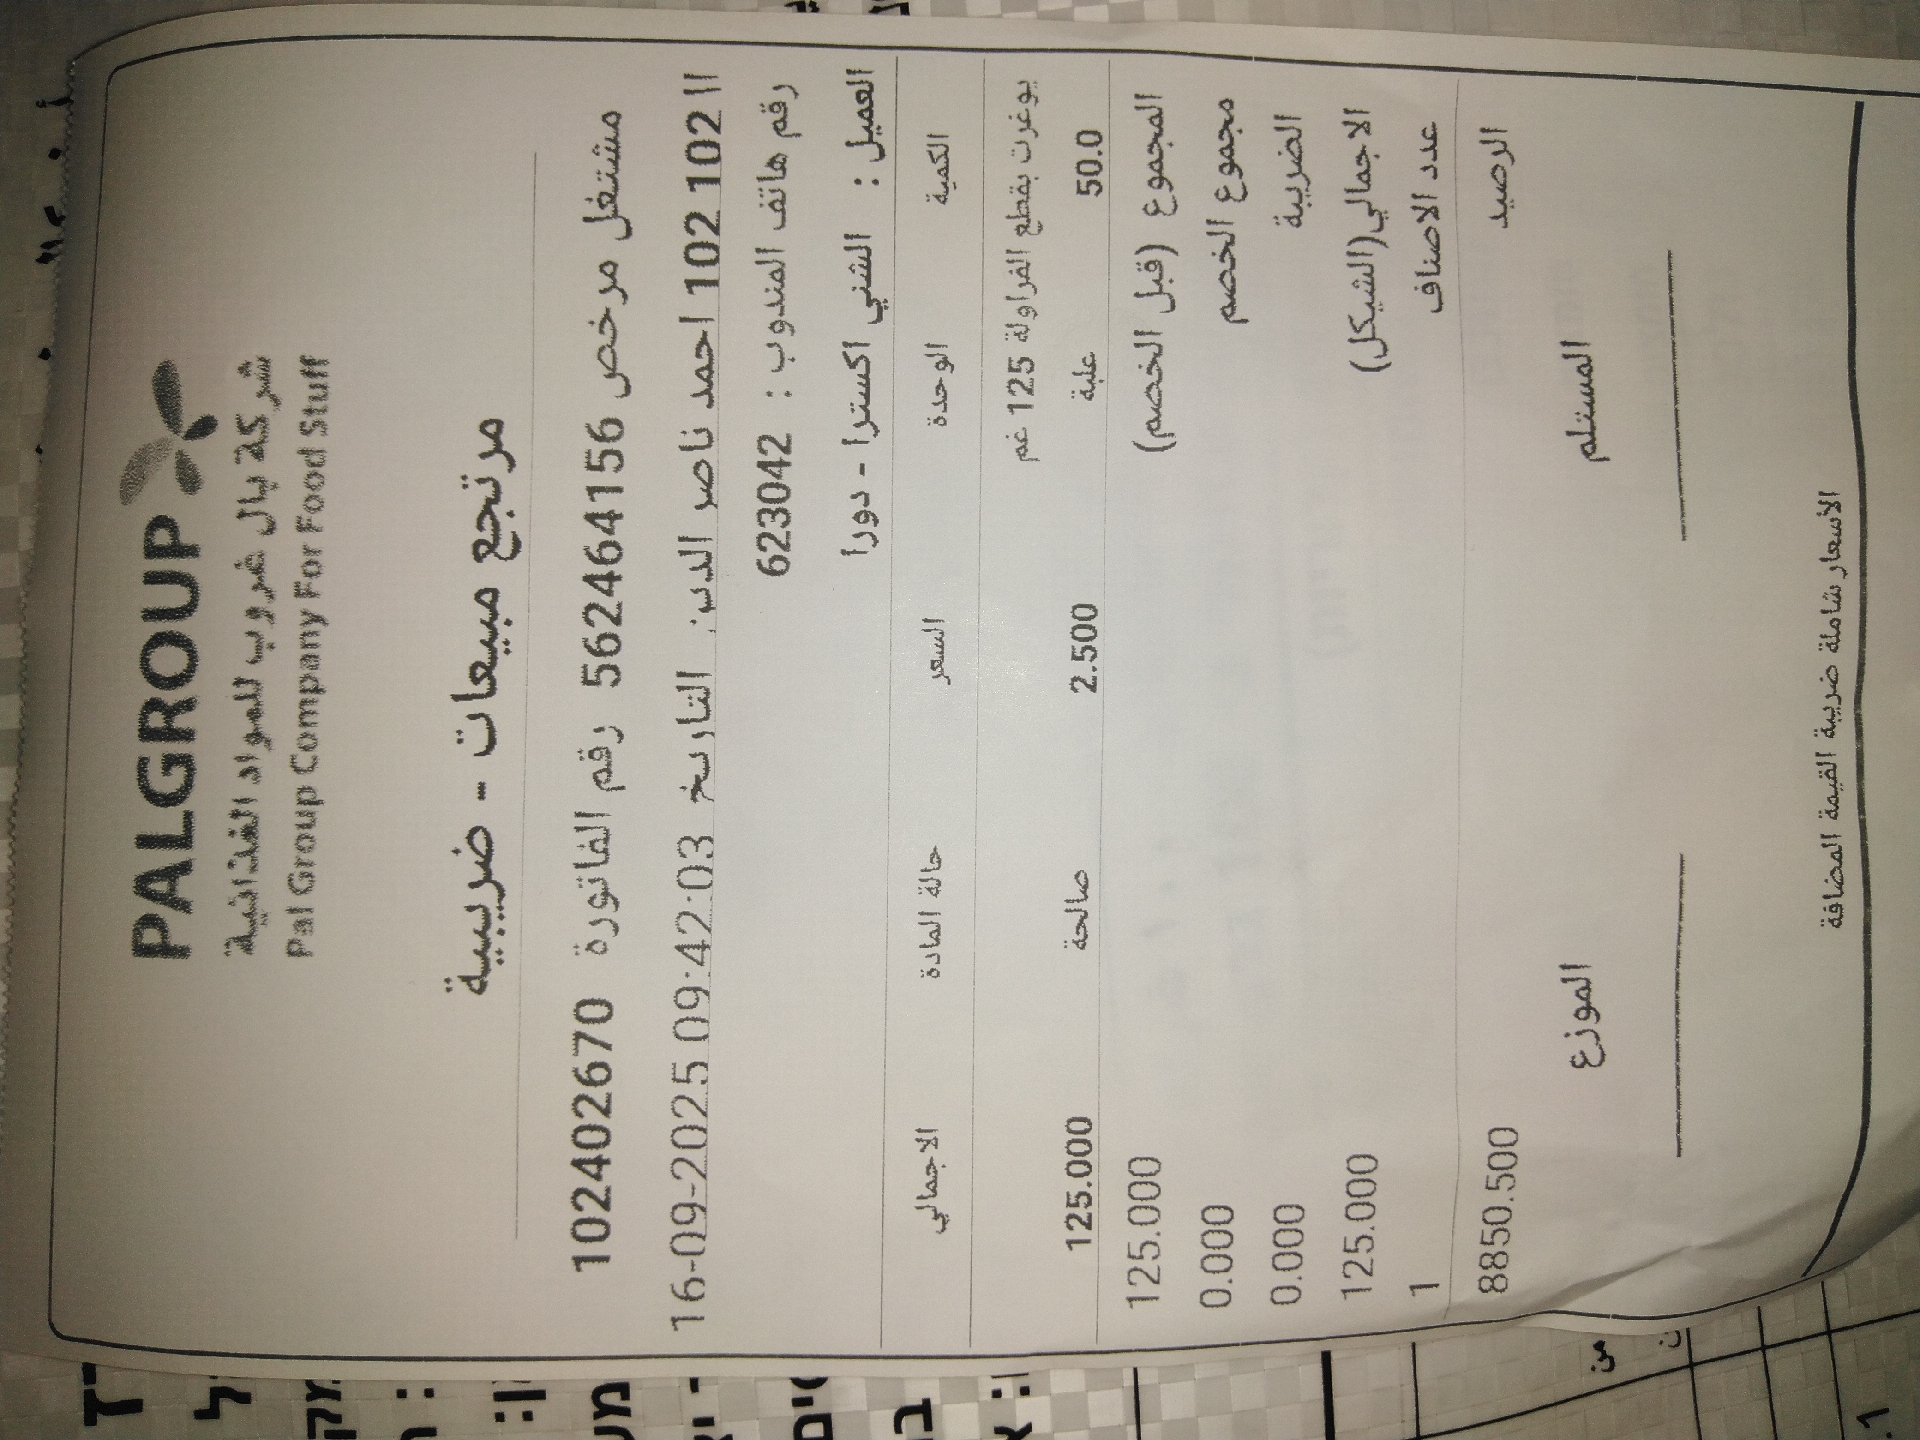 PALGROUP
شركة بال غروب للمواد الغذائية
Pal Group Company For Food Stuff
مرتجع مبيعات - ضريبية
مشتغل مرخص 562464156 رقم الفاتورة 102402670
102 102 احمد ناصر الدين التاريخ 16-09-2025 09:42:03
رقم هاتف المندوب : 623042
العميل : الشني اكسترا - دورا
الكمية الوحدة السعر حالة المادة الاجمالي
يوغرت بقطع الفراولة 125 غم
50.0 علبة 2.500 صالحة 125.000
المجموع (قبل الخصم) 125.000
مجموع الخصم 0.000
الضريبة 0.000
الاجمالي(الشيكل) 125.000
عدد الاصناف 1
الرصيد 8850.500
المستلم الموزع
الأسعار شاملة ضريبة القيمة المضافة